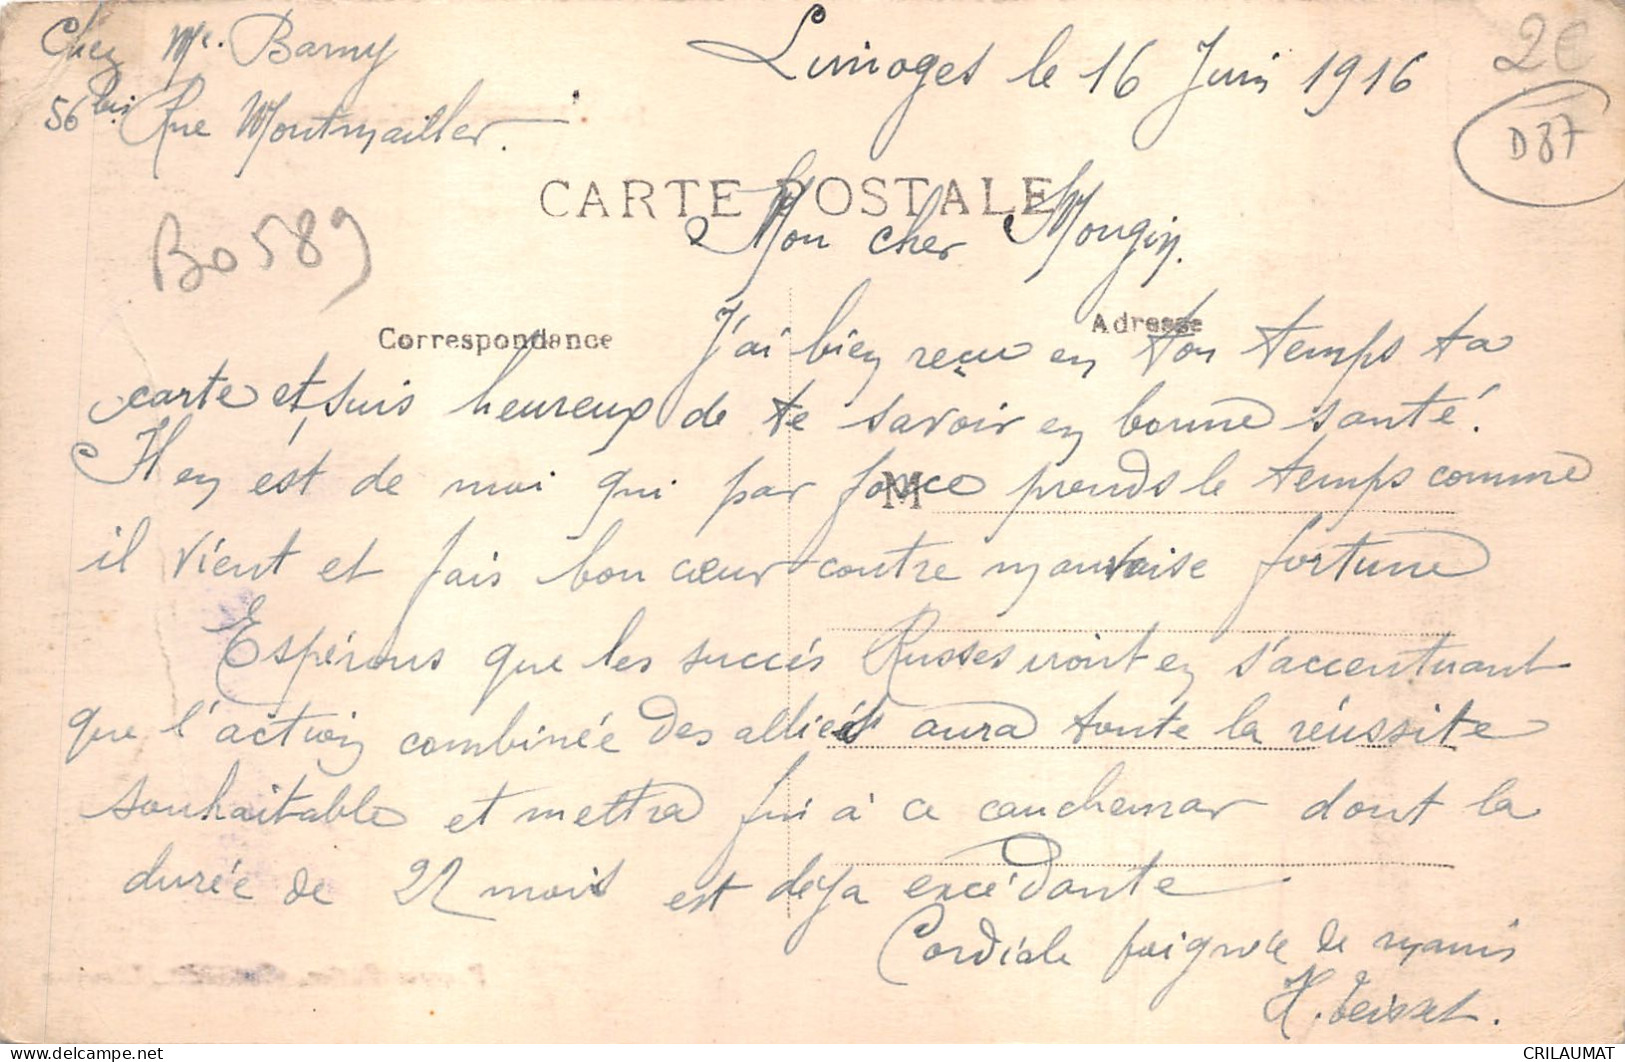 Chez Mr. Barny
56 bis Rue Montmailler.
Limoges le 16 Juin 1916
2€
D87
CARTE POSTALE
Bo589
Mon cher Mougin.
Correspondance
Adresse
J'ai bien reçu en ton temps ta
carte et suis heureux de te savoir en bonne santé.
Il en est de moi qui par force prends le temps comme
M
il vient et fais bon cœur contre mauvaise fortune
Espérons que les succés Russes iront en s'accentuant
que l'action combinée des alliés aura toute la réussite
souhaitable et mettra fin à ce cauchemar dont la
durée de 22 mois est déja excédante
Cordiale poignée de mains
H.
CRILAUMAT